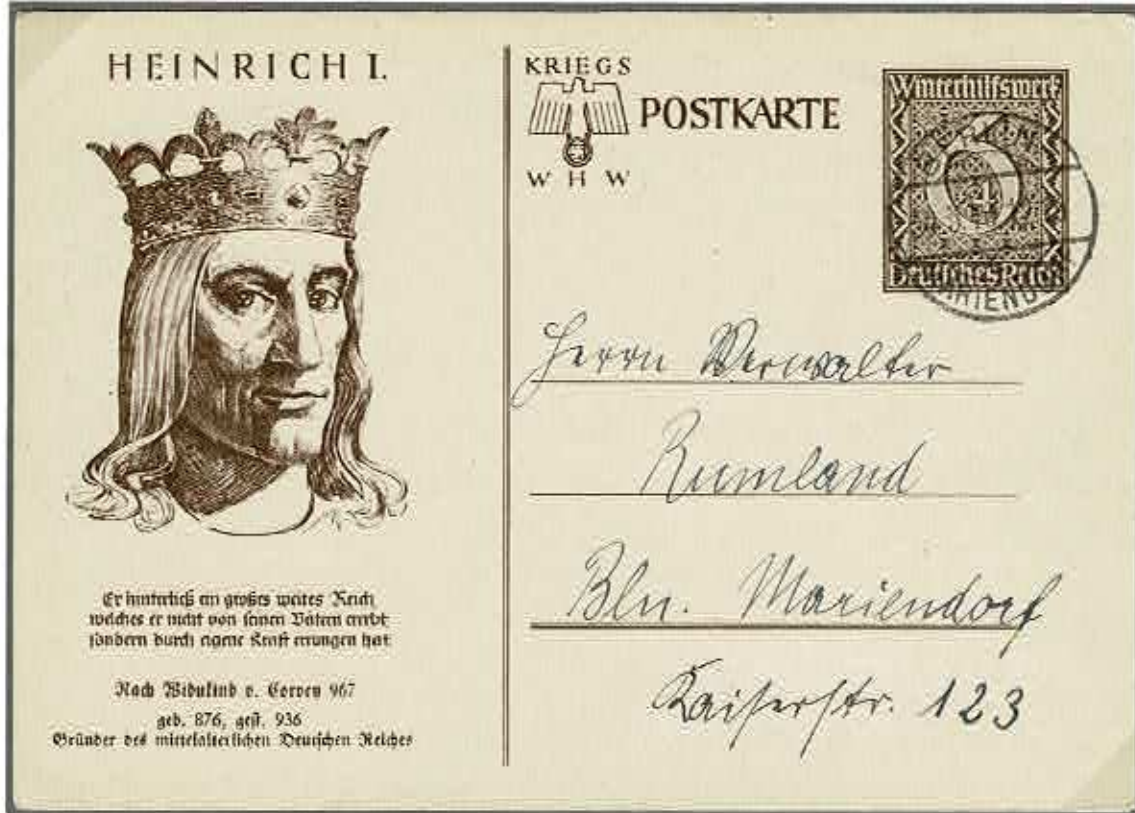 HEINRICH I.
Er hinterließ ein großes weites Reich
welches er nicht von seinen Vätern ererbt
sondern durch eigene Kraft errungen hat
Nach Widukind v. Corvey 967
geb. 876, gest. 936
Gründer des mittelalterlichen Deutschen Reiches
KRIEGS
POSTKARTE
W H W
Winterhilfswerk
6
4
Deutsches Reich
Herrn Verwalter
Rumland
Bln. Mariendorf
Kaiserstr. 123